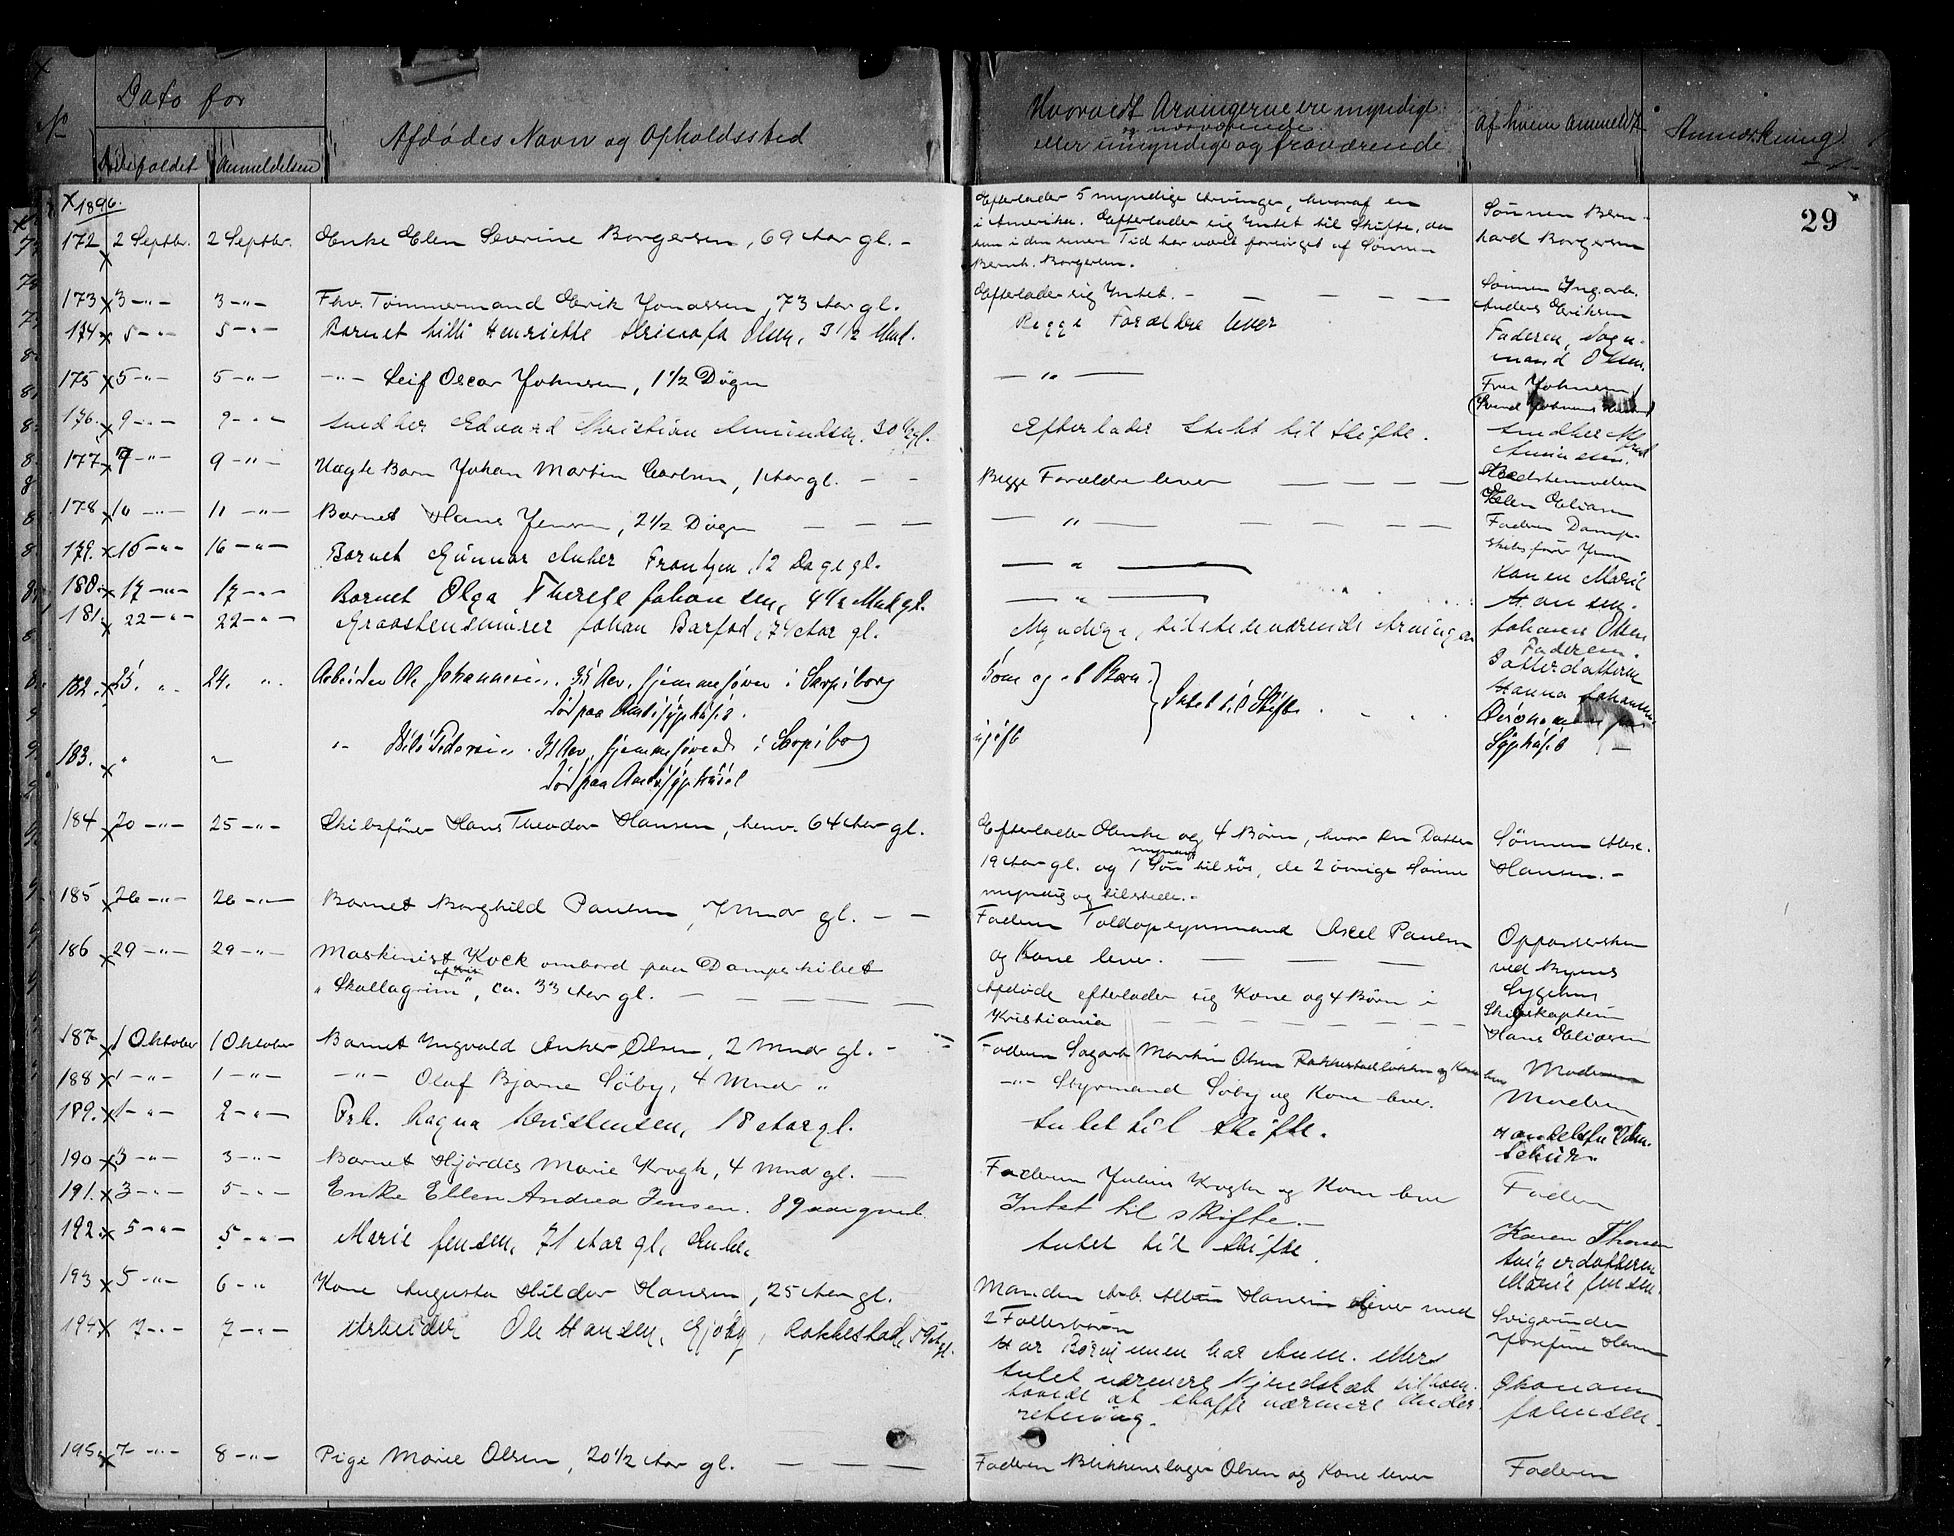 Dato for
No
Dødsfaldet Anmeldelsen
Afdødes Navn og Opholdssted
Hvorvidt Arvingerne ere myndige
og nærværende
eller umyndige og fraværende
Af hvem anmeldt
Anmærkning
29
1896.
172 2 Septbr. 2 Septbr. Enke Elen Severine Borgersen, 69 Aar gl. -
Efterlader 5 myndige Arvinger, hvoraf en
i Amerika. Efterlader sig Intet til Skifte, da
hun i den senere Tid har været forsørget af Sønnen
Bernh. Borgersen.
Sønnen Bern-
hard Borgersen
173 3 -"- 3 -"- Fhv. Tømmermand Erik Jonassen, 73 Aar gl.
Efterlader sig Intet. -
Sønnen
Anders Eriksen
174 5 -"- 5 -"- Barnet Henriette Olsen, 3 1/2 Mnd.
Begge Forældre lever
Faderen,
mand Olsen.
175 5 -"- 5 -"- -"- Leif Oscar Johnsen, 1 1/2 Døgn
- " -
Fru Johnsen
176. 9 -"- 9 -"- Snedker Edvard Christian Amundsen, 30
Efterlader Intet til Skifte.
Snedker
Amundsen.
177 9 -"- 9 -"- Uægte Barn Johan Martin Carlsen, 1 Aar gl. - -
Begge Forældre lever
Elen Eliasen
178 10 -"- 11 -"- Barnet Hans Jensen, 2 1/2 Døgn
- " -
Faderen Damp-
skibsfører Jensen
179. 15 -"- 16 -"- Barnet Gunnar Anker Frantzen, 12 Dage gl.
- " -
Konen Marie
Hansen.
180. 17 -"- 17 -"- Barnet Olga Therese Johansen, 4 1/2 Mnd gl.
- " -
Johanne Olsen
Faderen.
181. 22 -"- 22 -"- Johan Barfod, 74 Aar gl.
Myndige, tilstedeværende Arvinger
Datterdatteren
Hanna Johansen
182. 23. " 24. " Arbeider Ole Johannesen. hjemmehørende i Skjeberg
Død paa Amtssygehuset.
Intet til Skifte
183. " " Pedersen. hjemmehørende i Skjeberg
Død paa Amtssygehuset
ugift
Sygehuset
184 20 -"- 25 -"- Skibsfører Hans Theodor Hansen, henv. 64 Aar gl.
Efterlader Enke og 4 Børn, hvor en Datter
19 Aar gl. og 1 myndig Søn tilsøs, de 2 øvrige Sønner
myndig og tilstede. -
Sønnen Alex.
Hansen. -
185 26 -"- 26 -"- Barnet Borghild Paulsen, 7 Mndr gl. - -
Faderen Toldopsynsmand Axel Paulsen
og Kone lever.
Oppasserske
ved Byens
Sygehus
186 29 -"- 29 -"- Maskinist Kock ombord paa Dampskibet
"Skallagrim" af Kria, ca. 33 Aar gl.
Afdøde efterlader sig Kone og 4 Børn i
Kristiania
Skibskaptein
Hans Eliasen
187 1 Oktober 1 Oktober Barnet Ingvald Anker Olsen, 2 Mndr gl. -
Faderen Sagarb. Martin Olsen Rakkestadløkken og Kone lever
Moderen
188 1 -"- 1 -"- -"- Olaf Bjarne Søby, 4 Mndr "
-"- Styrmand Søby og Kone lever.
Moderen
189. 1 -"- 2 -"- Frk. Ragna Kristensen, 18 Aar gl.
Intet til Skifte.
190 3 -"- 3 -"- Barnet Hjørdis Marie Krogh, 4 Mndr gl.
Faderen Julius Krogh og Kone lever
Faderen
191. 3 -"- 5 -"- Enke Ellen Andrea Jensen. 89 aar gml.
Intet til skifte. -
Karen Thoresen
192. 5 -"- 5 -"- Marie Jensen, 71 Aar gl, Enke.
Intet til Skifte.
Svigerdatteren
Marie Jensen.
193 5 -"- 6 -" Kone Augusta Hilder Hansen, 25 Aar gl.
Manden Arb. Hansen lever med
2 Fællesbørn
Svigerinden
Josefine Hansen
194 7 -"- 7 -"- Arbeider Ole Hansen, Gjøby, Rakkestad, 59 Aar gl.
Har Børn, men har Anm. ellers
Intet nærmere Kjendskab til
at skaffe nærmere Under
retning.
Økonom
Johnsen.
195. 7 -"- 8 -"- Pige Marie Olsen, 20 1/2 Aar gl.
Faderen Blikkenslager Olsen og Kone lever
Faderen